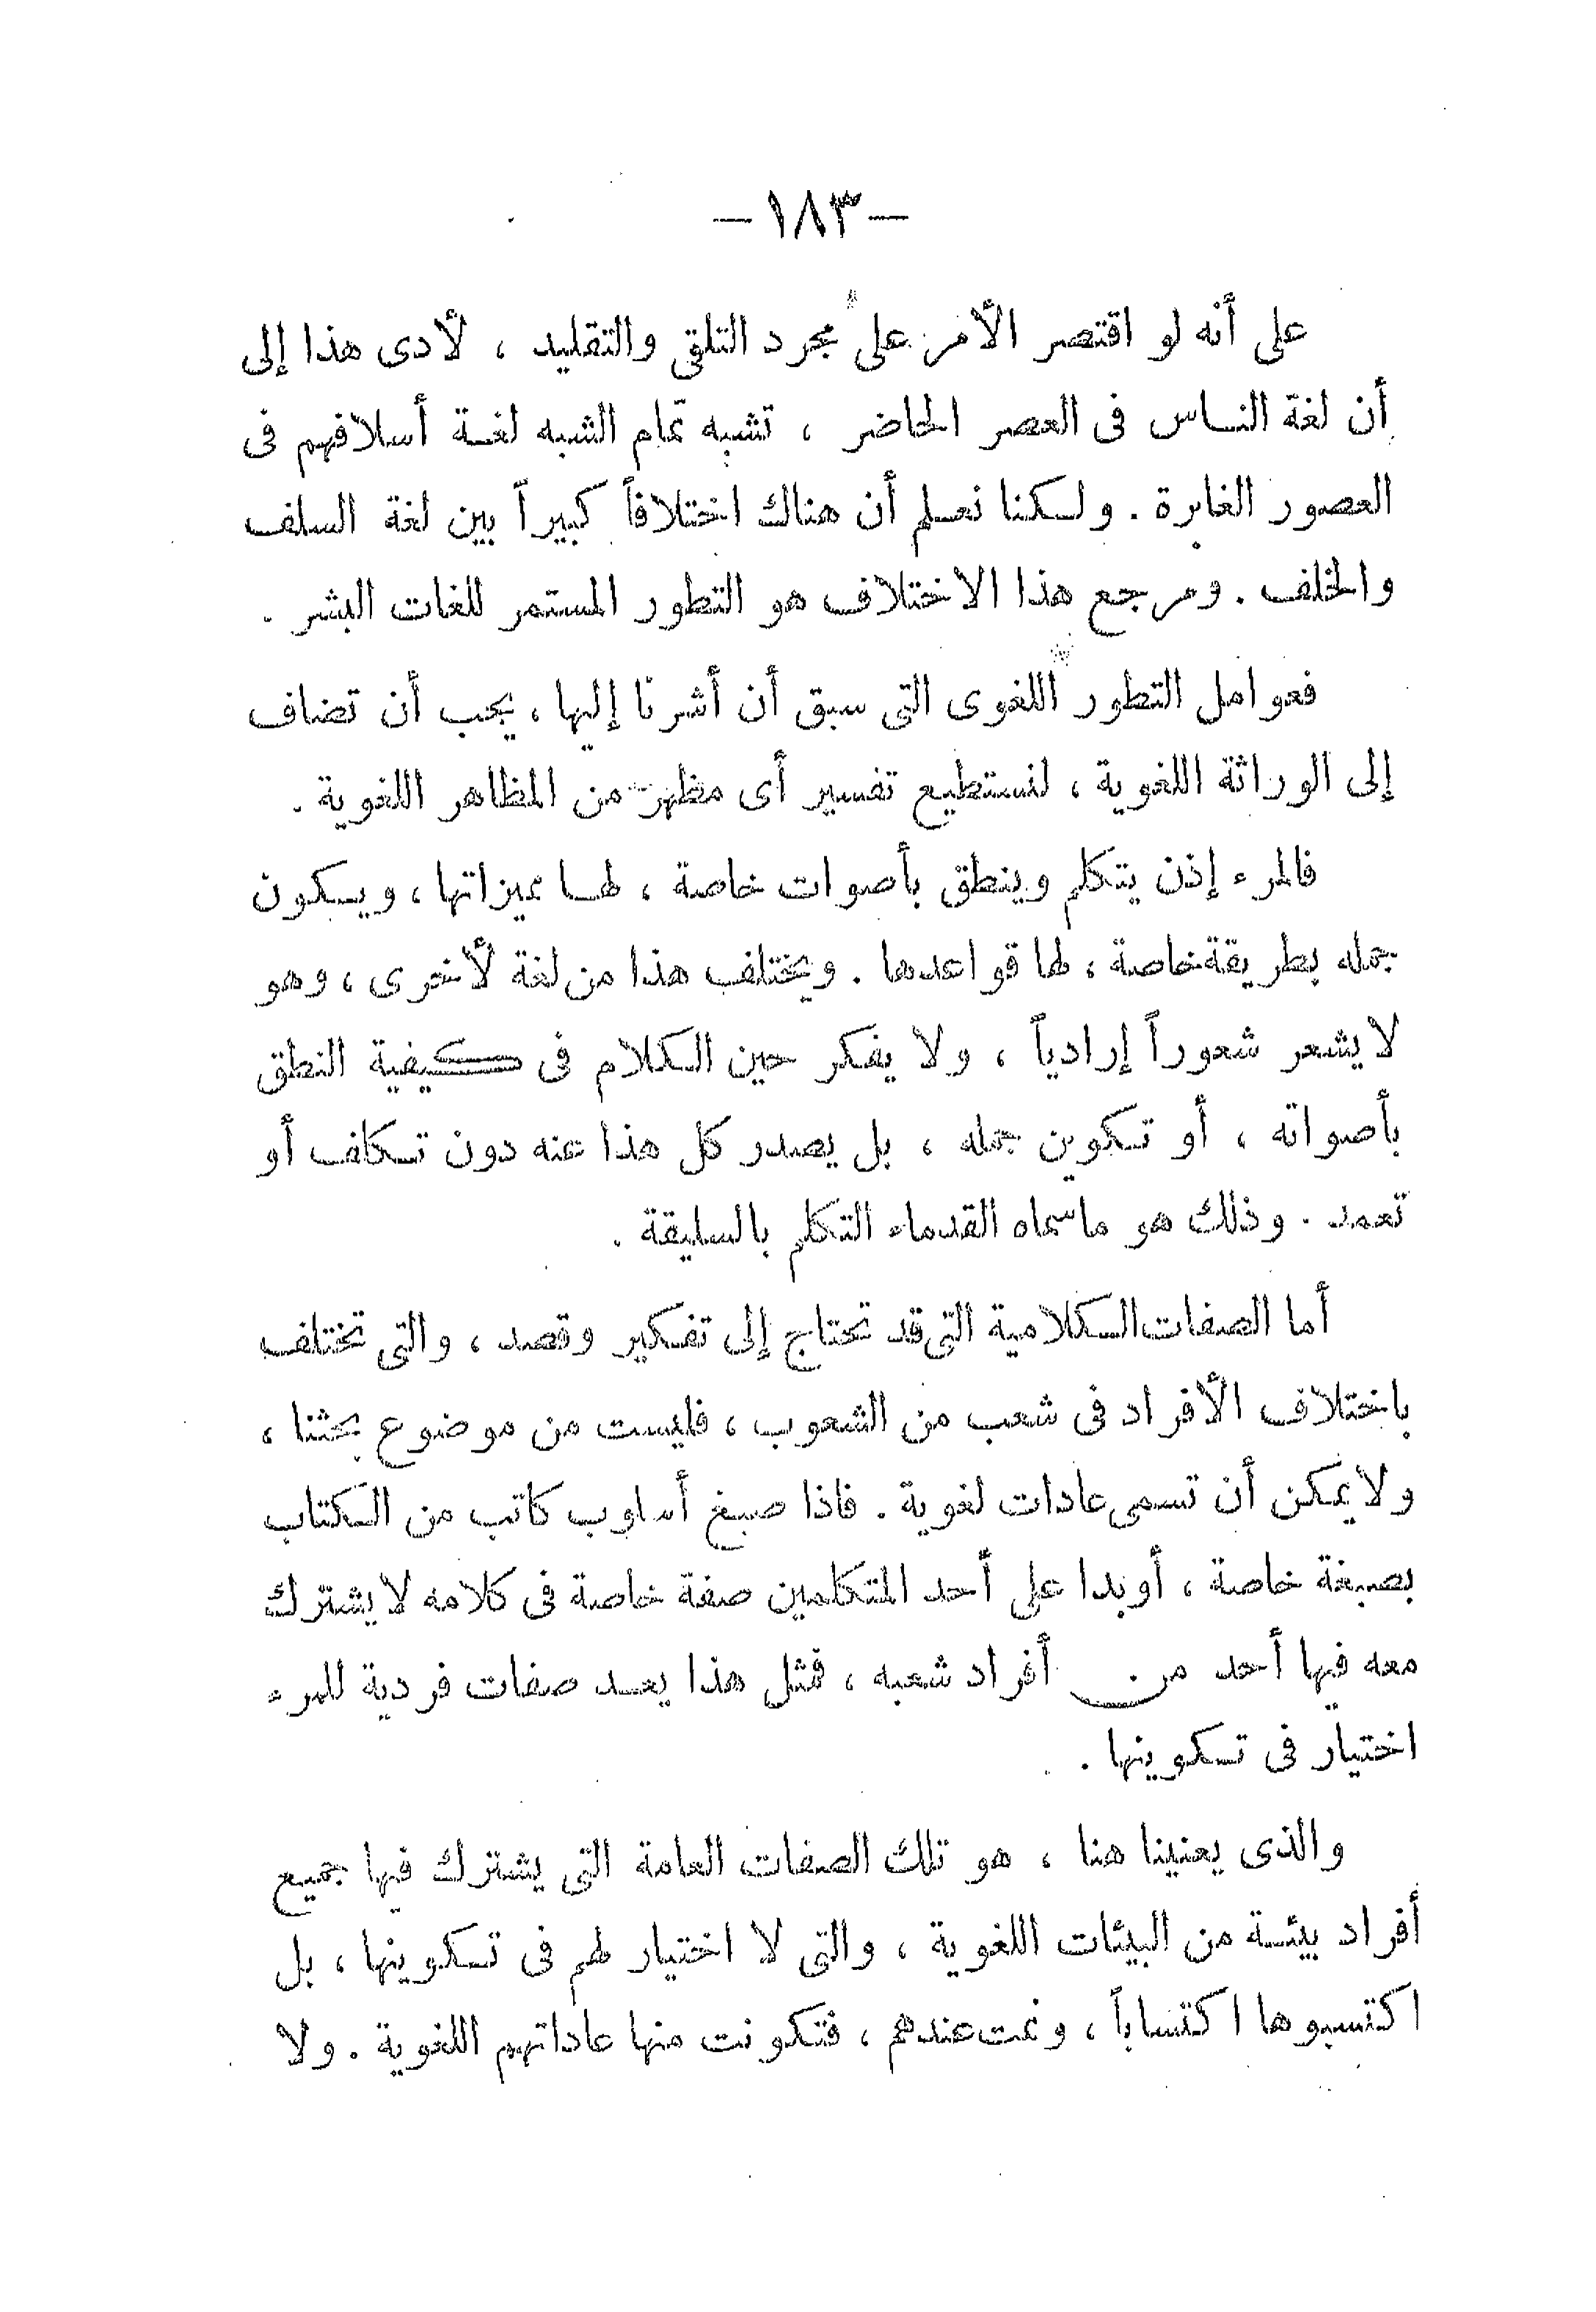 — ١٨٣ —
على أنه لو اقتصر الأمر على مجرد التلقى والتقليد ، لأدى هذا إلى
أن لغة الناس فى العصر الحاضر ، تشبه تمام الشبه لغة أسلافهم فى
العصور الغابرة . ولكنا نعلم أن هناك اختلافاً كبيراً بين لغة السلف
والخلف . ومرجع هذا الاختلاف هو التطور المستمر للغات البشر .
فعوامل التطور اللغوى التى سبق أن أشرنا إليها ، يجب أن تضاف
إلى الوراثة اللغوية ، لنستطيع تفسير أى مظهر من المظاهر اللغوية .
فالمرء إذن يتكلم وينطق بأصوات خاصة ، لها مميزاتها ، ويكون
جمله بطريقة خاصة ، لها قواعدها . ويختلف هذا من لغة لأخرى ، وهو
لا يشعر شعوراً إرادياً ، ولا يفكر حين الكلام فى كيفية النطق
بأصواته ، أو تكوين جمله ، بل يصدر كل هذا عنه دون تكلف أو
تعمد . وذلك هو ماسماه القدماء التكلم بالسليقة .
أما الصفات الكلامية التى قد تحتاج إلى تفكير وقصد ، والتى تختلف
باختلاف الأفراد فى شعب من الشعوب ، فليست من موضوع بحثنا ،
ولا يمكن أن تسمى عادات لغوية . فاذا صبغ أسلوب كاتب من الكتاب
بصبغة خاصة ، أو بدا على أحد المتكلمين صفة خاصة فى كلامه لا يشترك
معه فيها أحد من أفراد شعبه ، فمثل هذا يعد صفات فردية للمرء
اختيار فى تكوينها .
والذى يعنينا هنا ، هو تلك الصفات العامة التى يشترك فيها جميع
أفراد بيئة من البيئات اللغوية ، والتى لا اختيار لهم فى تكوينها ، بل
اكتسبوها اكتساباً ، ونمت عندهم ، فتكونت منها عاداتهم اللغوية . ولا